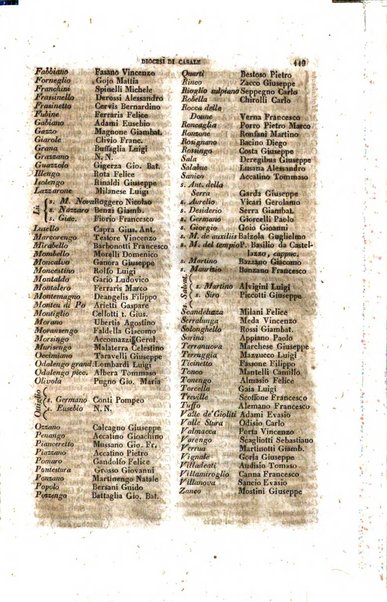 DIOCESI DI CASALE 449
Fabbiano Fasano Vincenzo
Forneglio Gojo Mattia
Franchini Spinelli Michele
Frassinello Derossi Alessandro
Frassinetto Cervis Bernardino
Fubine Ferraris Felice
Gabiano Adami Eusebio
Gazzo Magnone Giambat.
Giarole Civio Franc.
Grana Buffalla Luigi
Grazzano N. N.
Guazzolo Gigerza Gio. Bat.
Illengo Rota Felice
Isolengo Rinaldi Giuseppe
Lazzarone Milanese Luigi
Lu
s. M. Nova Roggero Nicolao
s. Nazzaro Benzi Giamb.
s. Giac. Florio Francesco
Lusello Capra Gius. Ant.
Marcorengo Tesiore Vincenzo
Mirabello Barbonotti Francesco
Mombello Morelli Domenico
Moncalvo Ganora Giuseppe
Moncestino Rolfo Luigi
Montaldo Gario Ludovico
Montaldo Ferraris Marco
Montemagno Deangelis Filippo
Monteu di Po Arietti Costante
Montiglio Cellotti t. Gius.
Morano Ubertis Agostino
Moransengo Faldella Giacomo
Morsingo Accomazzi Gerol.
Murisengo Airoldi Francesco
Occimiano Taravelli Giuseppe
Odalengo grand. Lombardi Luigi
Odalengo picc. Albera Tommaso
Olivola Pugno Gio. Maria
Ottiglio
s. Germano Conti Pompeo
s. Eusebio N. N.
Ozzano Calcagno Giuseppe
Penango Accatino Gioachino
Piancerreto Mussano Gio. Fr.
Piazzano Accatino Pietro
Pomaro Gandolfo Felice
Pontestura Grosso Giovanni
Ponzano Martinengo Natale
Popolo Bersani Guido
Pozzengo Battaglia Gio. Bat.
Quarti Bestoso Pietro
Rinco Zacco Giuseppe
Rioglio sulpiano Seppegno Carlo
Robella Chirolli Carlo
Rocca delle
Donne Verna Francesco
Roncaglia Porro Pietro Marco
Romzone Ronfani Martino
Rosignano Bacino Diego
Rossengo Costa Giuseppe
Sala Deregibus Giuseppe
Salabue Lusana Alessandro
Sanico Accatino Tommaso
s. Ant. della
Serra
s. Aurelio Vicari Gerolamo
s. Desiderio Serra Giambat.
s. Germano Giorcelli Paolo
s. Giorgio Gojo Gioanni
s. M. de auxiliis Balzola Guglielmo
s. M. del tempio P. Basilio da Castel-
lazzo, cappuc.
s. Martino Bazzano Giacomo
s. Maurizio Bonzano Francesco
s. Martino Alvigini Luigi
s. Siro Piccotti Giuseppe
Scandeluzza Milani Felice
Serralunga Meda Vincenzo
Solonghello Rossi Giambat.
Sorina Appiano Paolo
Terranuova Marchese Giuseppe
Terruggia Mazzucco Luigi
Ticinetto Fassone Filippo
Tonco Mantelli Camillo
Tonengo Almasio Felice
Torcella Gaja Luigi
Treville Scoffone Francesco
Tuffo Alemano Francesco
Valle de' Gioliti Adami Evasio
Valle Stura Odisio Carlo
Valmacca Porta Vincenzo
Varengo Scagliotti Sebastiano
Verrua Martinotti Giamb.
Vignale Goria Giuseppe
Villadeati Audisio Tomaso
Villamiroglio Camerano Giuseppe
Villanova Sancio Evasio
Zanco Mostini Giuseppe